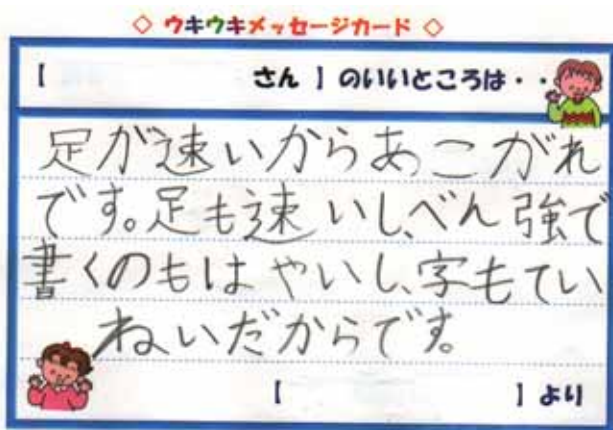 ◇ ウキウキメッセージカード ◇
【 さん 】のいいところは・・
足が速いからあこがれ
です。足も速いし、べん強で
書くのもはやいし、字もてい
ねいだからです。
【 】より